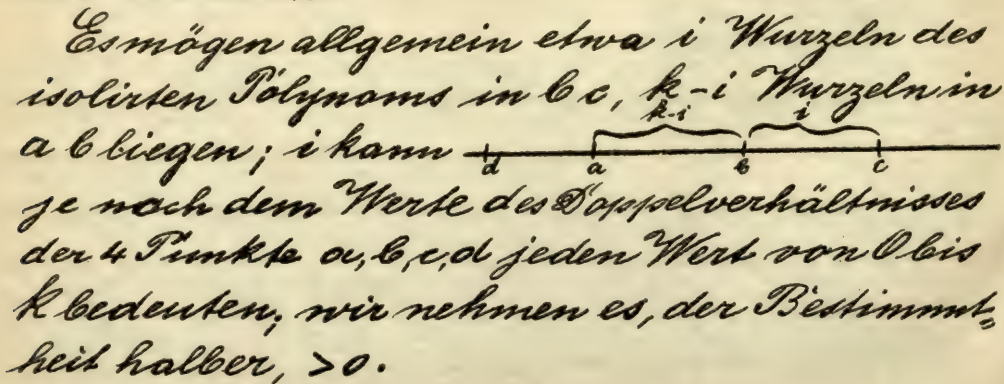 Es mögen allgemein etwa i Wurzeln des
isolirten Polynoms in b c, k-i Wurzeln in
k-i i
a b liegen; i kann
d a b c
je nach dem Werte des Doppelverhältnisses
der 4 Punkte a, b, c, d jeden Wert von 0 bis
k bedeuten; wir nehmen es, der Bestimmt=
heit halber, >0.